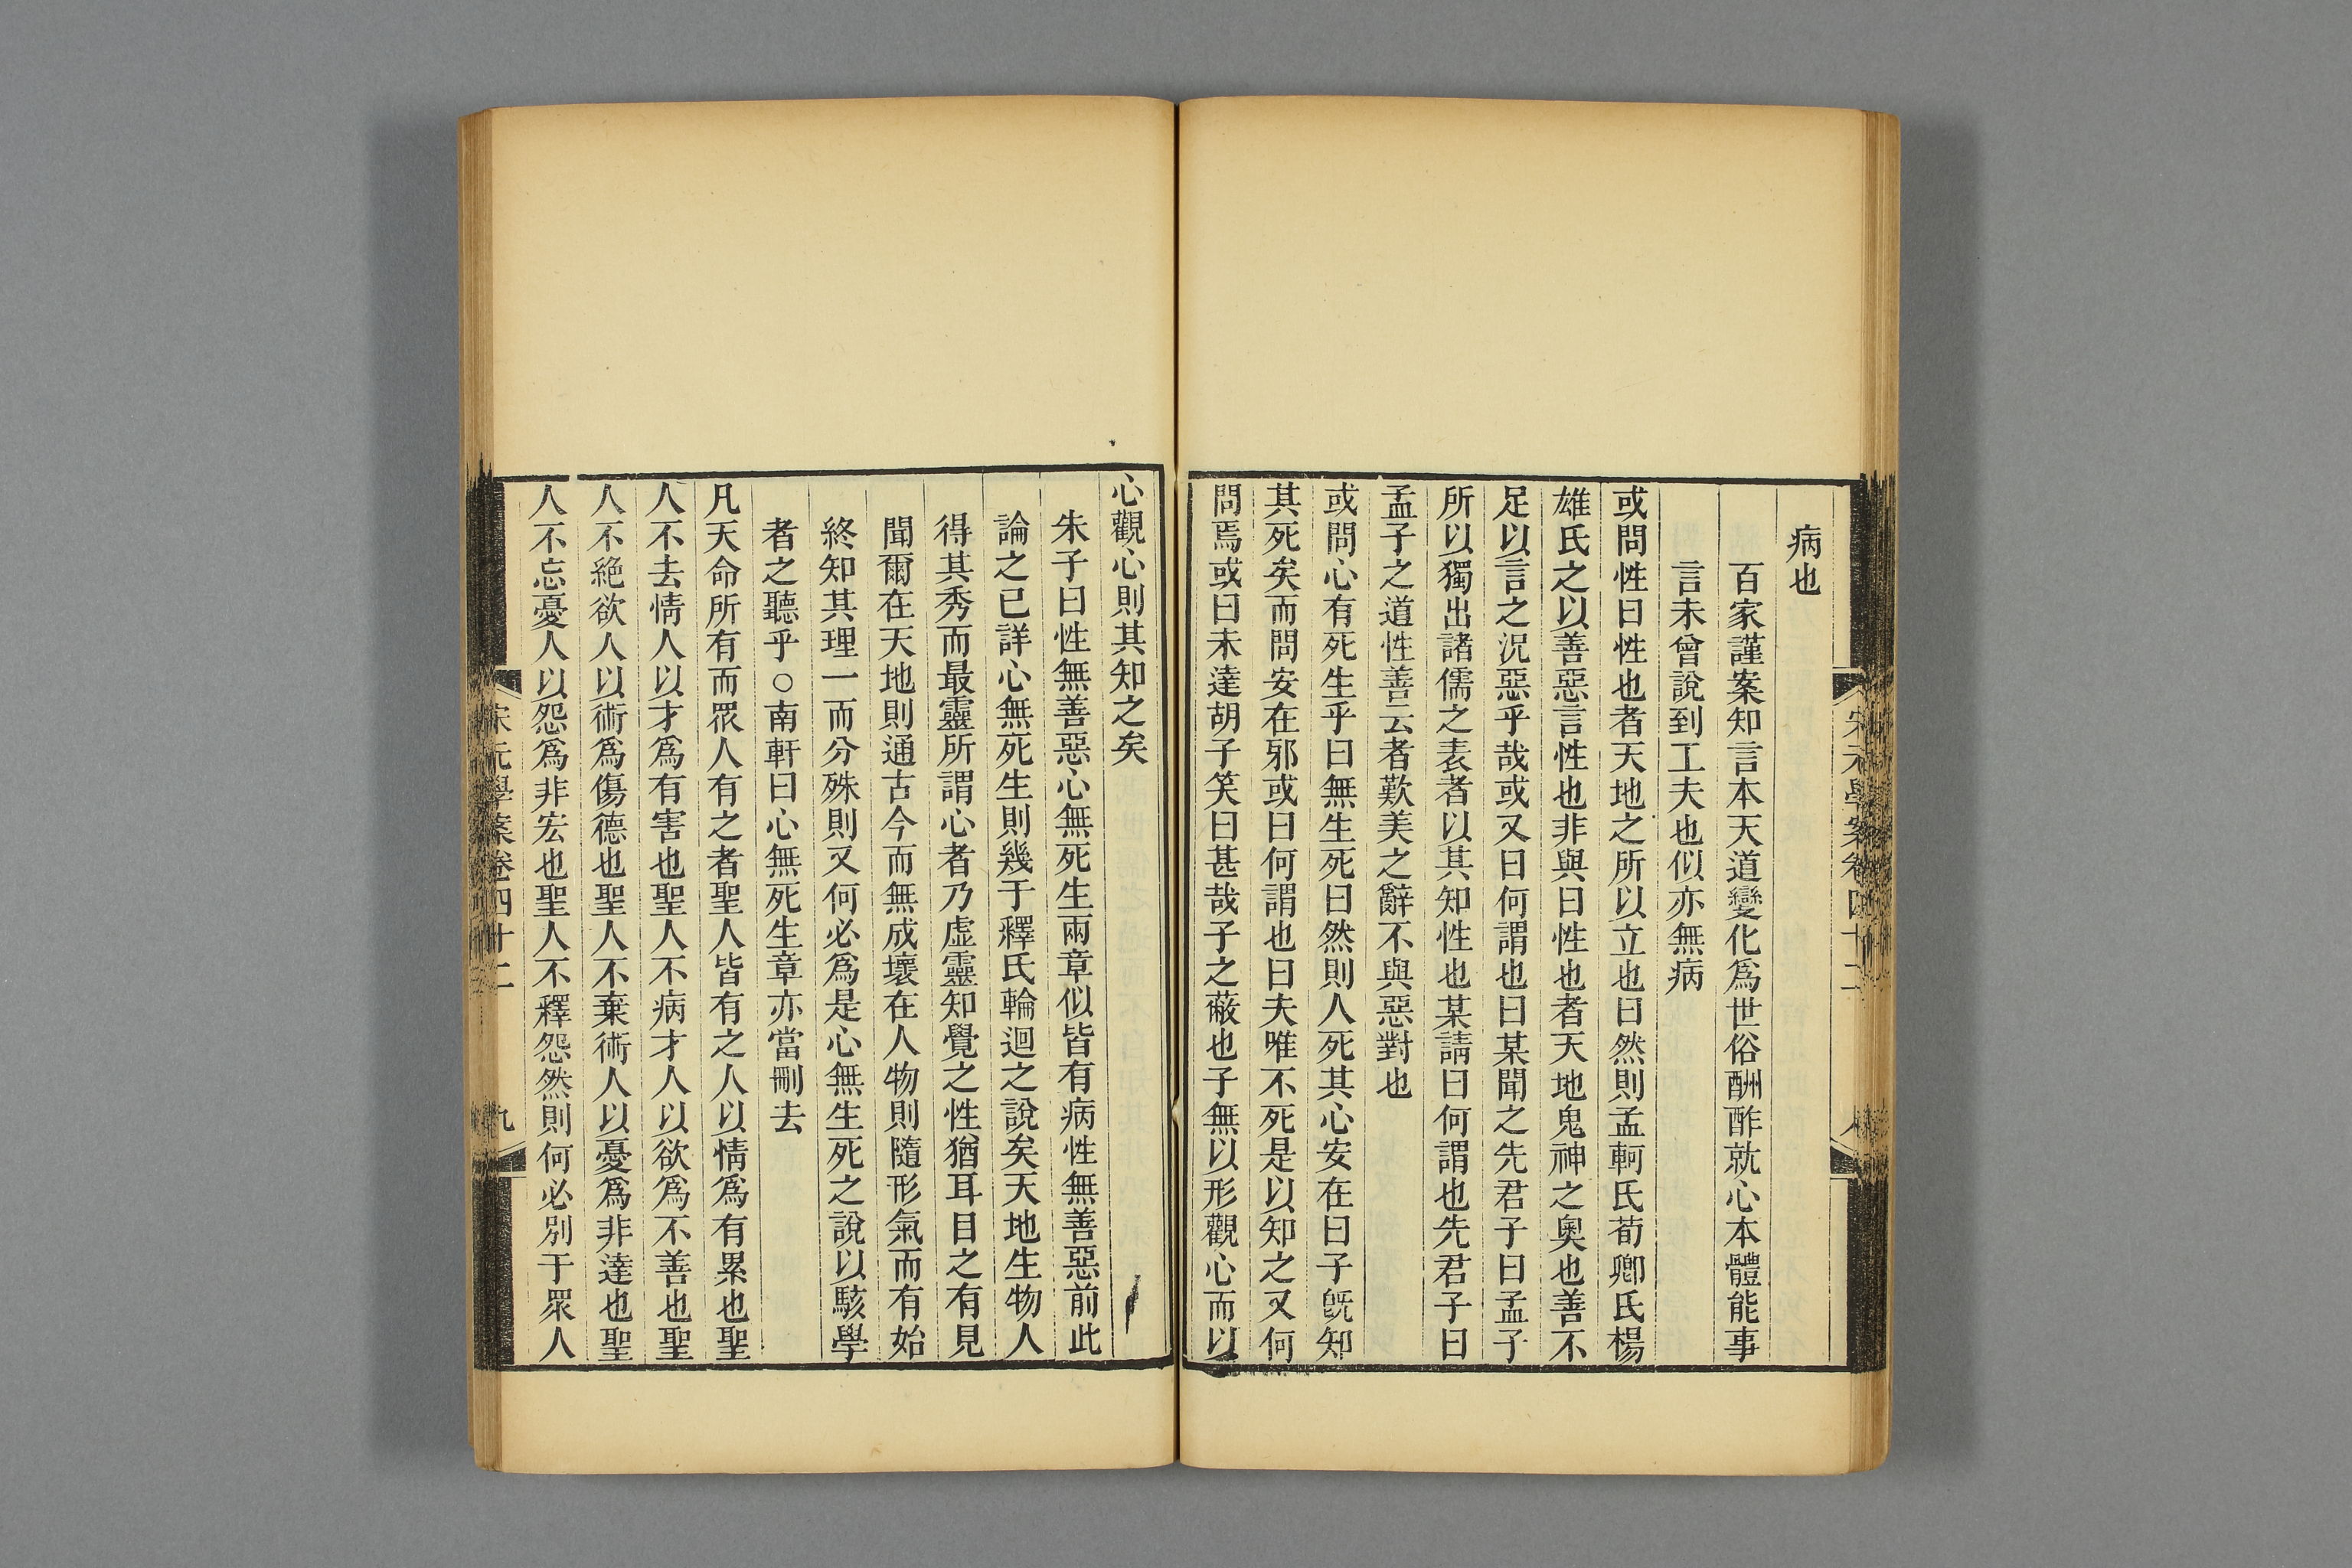 病也
百家謹案知言本天道變化爲世俗酬酢就心本體能事
言未曾說到工夫也似亦無病
或問性曰性也者天地之所以立也曰然則孟軻氏荀卿氏楊
雄氏之以善惡言性也非與曰性也者天地鬼神之奧也善不
足以言之況惡乎哉或又曰何謂也曰某聞之先君子曰孟子
所以獨出諸儒之表者以其知性也某請曰何謂也先君子曰
孟子之道性善云者歎美之辭不與惡對也
或問心有死生乎曰無生死曰然則人死其心安在曰子旣知
其死矣而問安在邪或曰何謂也曰夫唯不死是以知之又何
問焉或曰未達胡子笑曰甚哉子之蔽也子無以形觀心而以
宋元學案卷四十二
八
心觀心則其知之矣
朱子曰性無善惡心無死生兩章似皆有病性無善惡前此
論之已詳心無死生則幾于釋氏輪迴之說矣天地生物人
得其秀而最靈所謂心者乃虛靈知覺之性猶耳目之有見
聞爾在天地則通古今而無成壞在人物則隨形氣而有始
終知其理一而分殊則又何必爲是心無生死之說以駭學
者之聽乎○南軒曰心無死生章亦當刪去
凡天命所有而眾人有之者聖人皆有之人以情爲有累也聖
人不去情人以才爲有害也聖人不病才人以欲爲不善也聖
人不絶欲人以術爲傷德也聖人不棄術人以憂爲非達也聖
人不忘憂人以怨爲非宏也聖人不釋怨然則何必別于眾人
宋元學案卷四十二
九